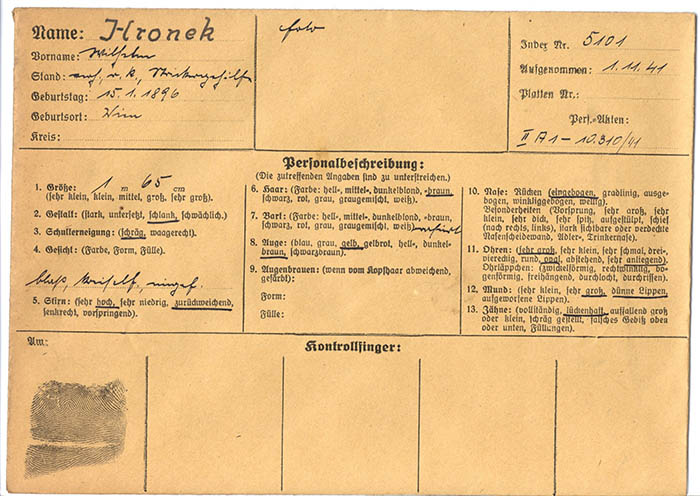 Name: Hronek
Vorname: Wilhelm
Stand: r. k.,
Geburtstag: 15. 1. 1896
Geburtsort: Wien
Kreis:
foto
Index Nr. 5101
Aufgenommen: 1. 11. 41
Platten Nr.:
Pers.-Akten:
II A1 – 10.310/41
Personalbeschreibung:
(Die zutreffenden Angaben sind zu unterstreichen.)
1. Größe: 1 m 65 cm
(sehr klein, klein, mittel, groß, sehr groß).
2. Gestalt: (stark, untersetzt, schlank, schwächlich.)
3. Schulterneigung: (schräg, waagerecht).
4. Gesicht: (Farbe, Form, Fülle).
5. Stirn: (sehr hoch, sehr niedrig, zurückweichend,
senkrecht, vorspringend).
6. Haar: (Farbe: hell-, mittel-, dunkelblond, -braun,
schwarz, rot, grau, graugemischt, weiß).
7. Bart: (Farbe: hell-, mittel-, dunkelblond, -braun,
schwarz, rot, grau, graugemischt, weiß) rasiert
8. Auge: (blau, grau, gelb, gelbrot, hell-, dunkel-
braun, schwarzbraun).
9. Augenbrauen: (wenn vom Kopfhaar abweichend,
gefärbt):
Form:
Fülle:
10. Nase: Rücken (eingebogen, gradlinig, ausge-
bogen, winkliggebogen, wellig).
Besonderheiten (Vorsprung, sehr groß, sehr
klein, sehr dick, sehr spitz, aufgestülpt, schief
(nach rechts, links), stark sichtbare oder verdeckte
Nasenscheidewand, Adler-, Trinkernase).
11. Ohren: (sehr groß, sehr klein, sehr schmal, drei-
viereckig, rund, oval, abstehend, sehr anliegend).
Ohrläppchen: (zwickelförmig, rechtwinklig, bo-
genförmig, freihängend, durchlocht, durchrissen).
12. Mund: (sehr klein, sehr groß, dünne Lippen,
aufgeworfene Lippen).
13. Zähne: (vollständig, lückenhaft, auffallend groß
oder klein, schräg gestellt, falsches Gebiß oben
oder unten, Füllungen).
Am:
Kontrollfinger: